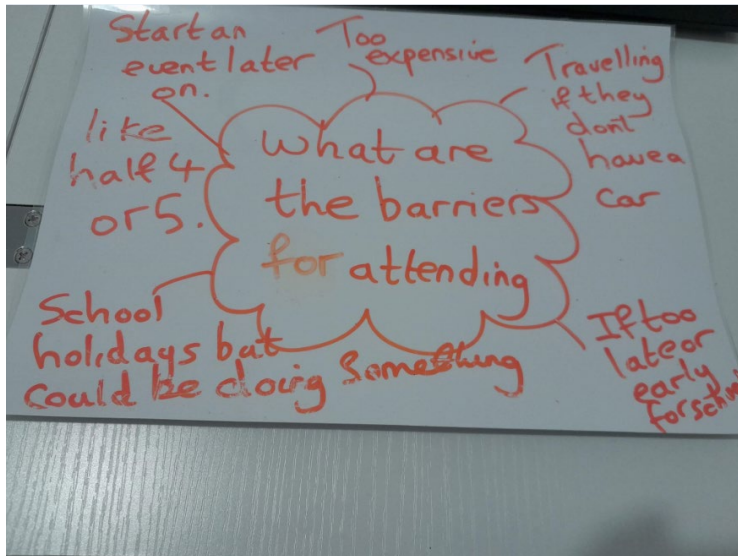 What are
the barriers
for attending
Start an
event later
on.
like
half 4
or 5.
Too
expensive
Travelling
if they
dont
have a
car
If too
late or
early
for school
School
holidays but
could be doing something